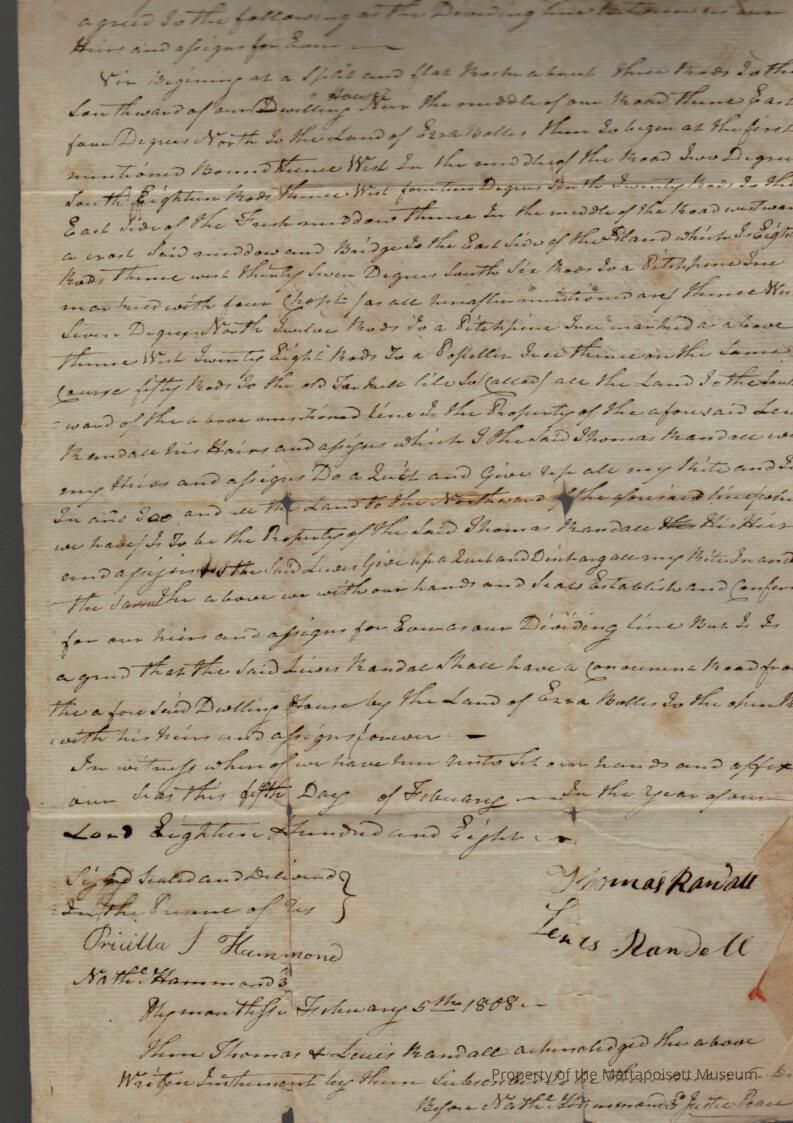 agreed to the following as the Dividing line between us our
Heirs and assigns for Ever —
Viz Begining at a Split and flat Rock about three Rods to the
Southward of our Dwelling House Near the middle of our Road thence East
four Degrees North to the Land of Ezra Bolles then to begin at the first
mentioned Bound thence West In the middle of the Road Two Degrees
South Eighteen Rods thence West fourteen Degrees South Twenty Rods to the
East Side of the Fresh meddow thence In the middle of the Road westward
a crost Said meddow and Bridge to the East Side of the Island which Is Eight
Rods thence west thirty Seven Degrees South Six Rods to a Pitchpine Tree
marked with four Chopts (as all hereafter mentioned are) thence West
Seven Degrees North Twelve Rods To a Pitchpine Tree marked as above
thence West Twenty Eight Rods To a Popeller Tree thence on the Same
Course fifty Rods To the old So Called all the Land To the South
-ward of the above mentioned line Is the Property of the aforesaid Lewis
Randall his Hairs and assigns which I the Said Thomas Randall with
my Heirs and assigns Do a Quit and Give up all my Rite and
In and Too and all the Land to the Northward of the aforesaid line
we have Is To be the Property of the Said Thomas Randall His Heirs
and assigns & I the Said Lewis Give up a Quit and Discharg all my Rite In and
the Same the above we with our hands and Seals Establish and Confirm
for our heirs and assigns for Ever as our Dividing line But It Is
agreed that the Said Lewis Randal Shall have a Convenient Road from
the afore Said Dwelling House by the Land of Ezra Bolles To the open
with his heirs and assigns forever —
In witness whereof we have here unto Set our hands and affix
our Seas this fifth Day of February — In the year of our
Lord Eighteen Hundred and Eight —
Signed Sealed and Deliverd
In the Presence of Us
Thomas Randall
Lewis Randell
Pricilla S Hammond
Nathl Hammond 3
Plymouth Ss February 5th 1808 —
then Thomas & Lewis Randall acknoledged the above
Written Instrument by them
Before Nathl Hammond 3d Justice Peace
Property of the Mattapoisett Museum